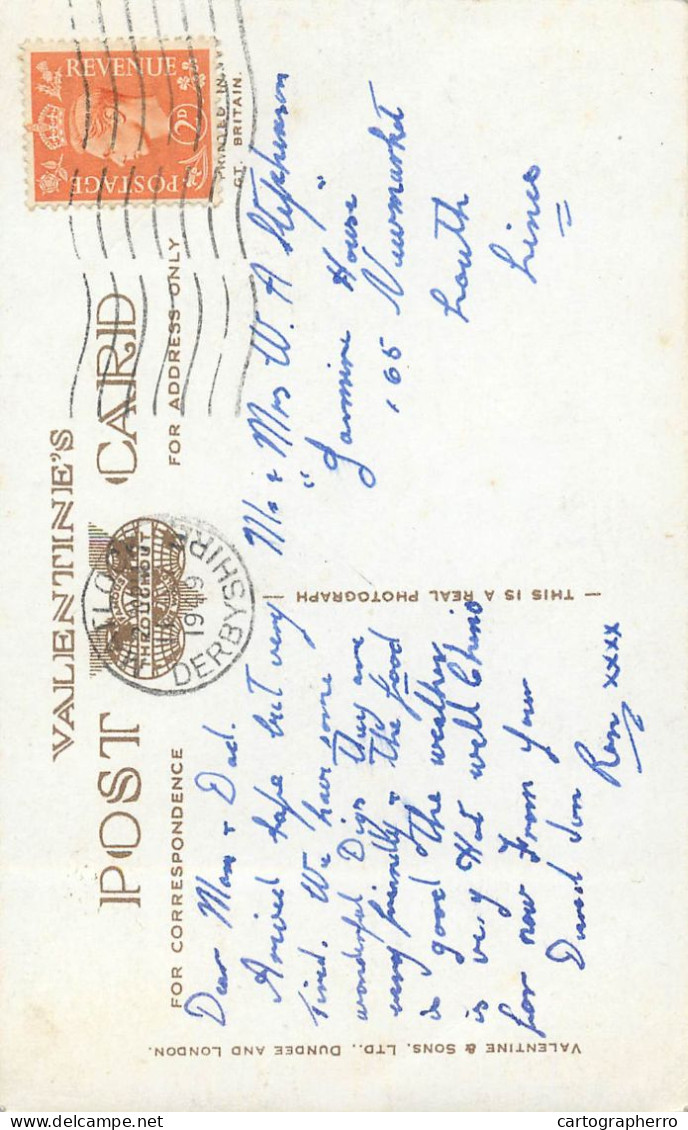 VALENTINE'S
POST CARD
FOR CORRESPONDENCE
FOR ADDRESS ONLY
REVENUE
2D
POSTAGE
PRINTED IN
GT. BRITAIN.
THROUGHOUT
MATLOCK
1949
DERBYSHIRE
Dear Mam & Dad.
Arrived safe but very
tired. We have some
wonderful Digs They are
very friendly & The food
is good The weather
is very Hot well Cheerio
for now From your
son
Ron xxxx
Mr & Mrs W. A Stephenson
" House "
165 Newmarket
Louth
Lincs
— THIS IS A REAL PHOTOGRAPH —
VALENTINE & SONS. LTD., DUNDEE AND LONDON.
cartographerro